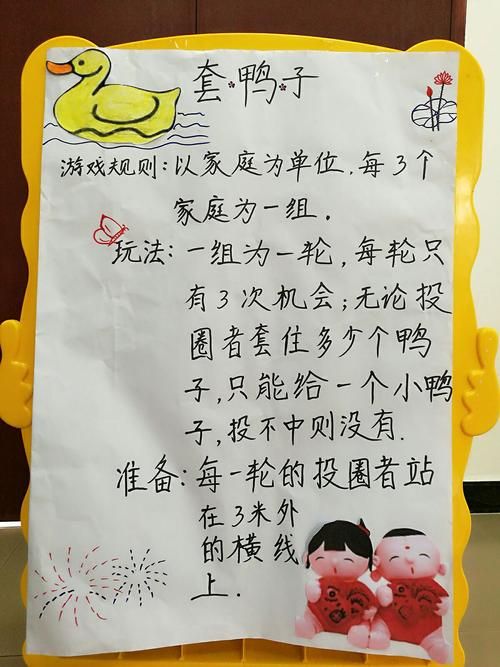 套·鸭子
游戏规则:以家庭为单位,每3个
家庭为一组。
玩法:一组为一轮,每轮只
有3次机会;无论投
圈者套住多少个鸭
子,只能给一个小鸭
子,投不中则没有.
准备:每一轮的投圈者站
在3米外
的横线
上.